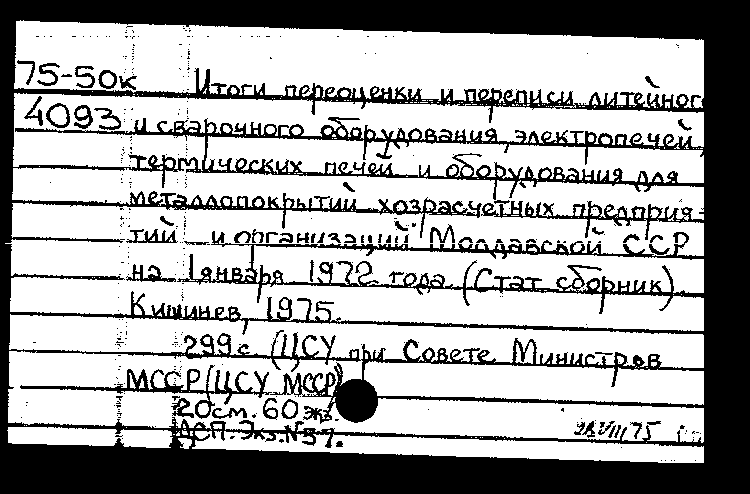 75-50к Итоги переоценки и переписи литейного
4093 и сварочного оборудования, электропечей,
термических печей и оборудования для
металлопокрытий хозрасчетных предприя-
тий и организаций Молдавской ССР
на 1 января 1972 года (Стат сборник).
Кишинев, 1975.
299с. (ЦСУ при Совете Министров
МССР (ЦСУ МССР)
20см. 60 экз.
ДСП. Экз. N 57.
75